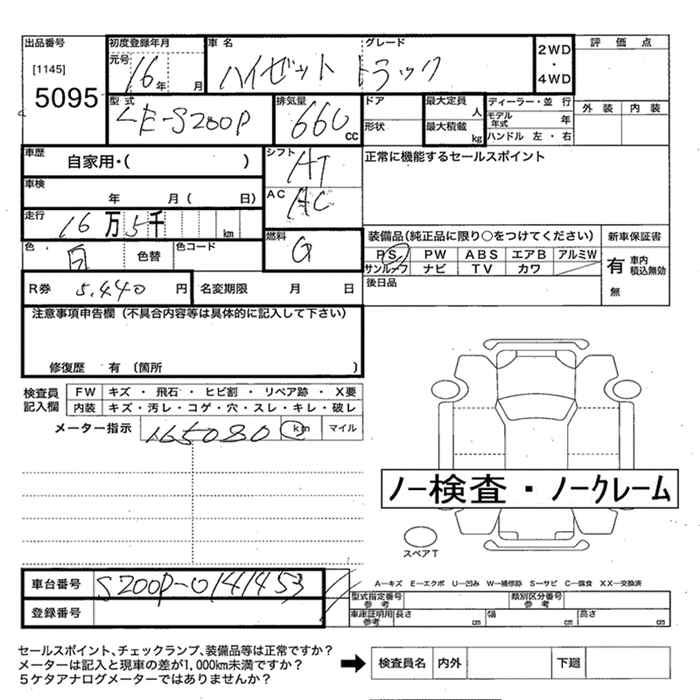 出品番号
[1145]
5095
初度登録年月
元号
16年 月
車名
ハイゼット トラック
グレード
2WD
・
4WD
評価点
外装 内装
型式
LE-S200P
排気量
660
cc
ドア
形状
最大定員
人
最大積載
kg
ディーラー・並行
モデル年式 年
ハンドル 左・右
車歴
自家用・( )
シフト
AT
正常に機能するセールスポイント
車検
年 月( 日)
AC
AC
走行
16万5千 km
燃料
G
色
白
色替
色コード
装備品(純正品に限り○をつけてください)
PS PW ABS エアB アルミW
サンルーフ ナビ TV カワ
後日品
新車保証書
有 車内積込無効
無
R券 5,440 円
名変期限 月 日
注意事項申告欄(不具合内容等は具体的に記入して下さい)
修復歴 有 (箇所 )
検査員記入欄
FW キズ・飛石・ヒビ割・リペア跡・X要
内装 キズ・汚レ・コゲ・穴・スレ・キレ・破レ
メーター指示 165080 km マイル
ノー検査・ノークレーム
スペアT
車台番号 S200P-0141453
登録番号
A―キズ E―エクボ U―凹み W―補修跡 S―サビ C―腐食 XX―交換済
型式指定番号 参考
類別区分番号 参考
車庫証明用 参考 長さ cm 幅 cm 高さ cm
セールスポイント、チェックランプ、装備品等は正常ですか?
メーターは記入と現車の差が1,000km未満ですか?
5ケタアナログメーターではありませんか?
➡ 検査員名 内外 下廻